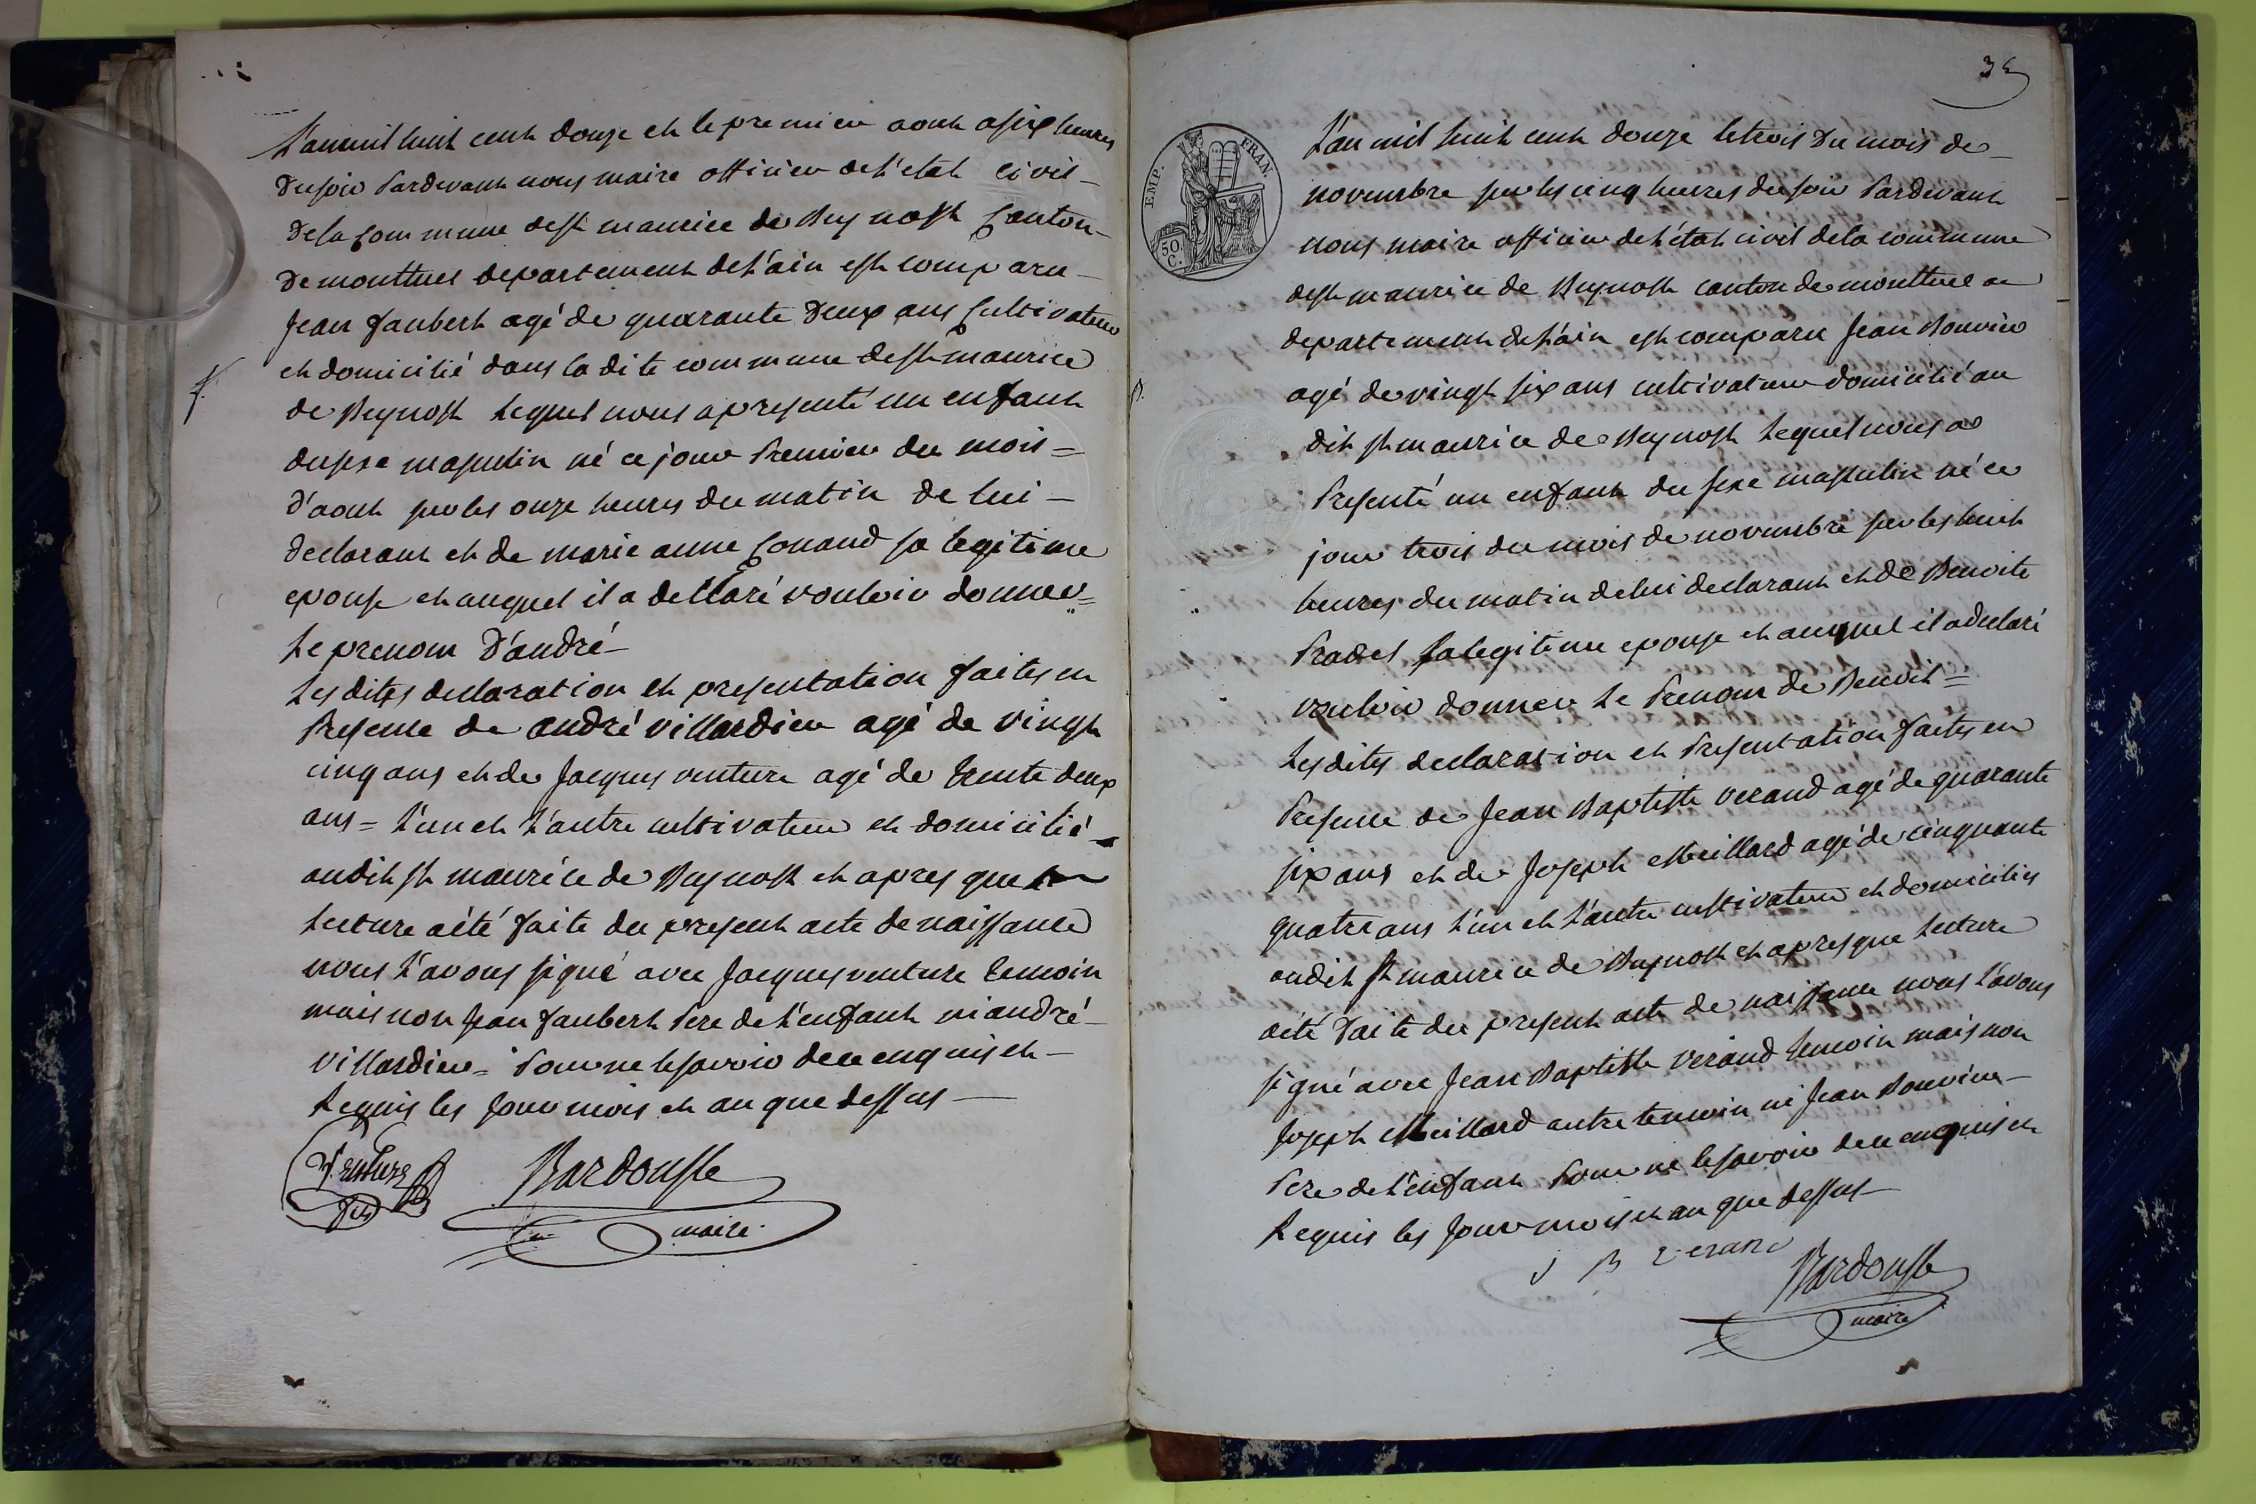 L'an mil huit cent douze et le premier aout a six heures
du soir Pardevant nous maire officier de l'etat civil
de la commune de st maurice de Beynost Canton
de montluel departement de l'ain est comparu
Jean Jaubert agé de quarante deux ans Cultivateur
et domicilié dans la dite commune de st maurice
de Beynost Lequel nous a presenté un enfant
du sexe masculin né ce jour Premier du mois =
d'aout sur les onze heures du matin de lui
declarant et de marie anne Conand sa legitime
epouse et auquel il a declaré vouloir donner =
Le prenom d'andré
Les dites declaration et presentation faites en
Presence de andré villardier agé de vingt
cinq ans et de Jacques venture agé de trente deux
ans = L'un et L'autre cultivateur et domicilié
audit st maurice de Beynost et apres que
Lecture a été faite du present acte de naissance
nous L'avons signé avec Jacques venture temoin
mais non Jean Jaubert Pere de L'enfant ni andré
villardier = Pour ne le savoir de ce enquis et
Requis les Jour mois et an que dessus
Venture
fils
Bardousse
maire
EMP. FRAN.
50.
C.
L'an mil huit cent douze le trois du mois de
novembre sur les cinq heures du soir Pardevant
nous maire officier de l'état civil de la commune
de st maurice de Beynost canton de montluel
departement de L'ain est comparu Jean Bouvier
agé de vingt six ans cultivateur domicilié au
dit st maurice de Beynost Lequel nous a
Presenté un enfant du sexe masculin né ce
jour trois du mois de novembre sur les huit
heures du matin de lui declarant et de Benoite
Prades sa legitime epouse et auquel il a declaré
vouloir donner Le Prenom de Benoit =
Les dites declaration et Presentation faites en
Presence de Jean Baptiste verand agé de quarante
six ans et de Joseph Meillard agé de cinquante
quatre ans L'un et L'autre cultivateur et domiciliés
audit st maurice de Beynost et apres que Lecture
a été faite du present acte de naissance nous L'avons
signé avec Jean Baptiste verand temoin mais non
Joseph Meillard autre temoin ni Jean Bouvier
Pere de L'enfant Pour ne le savoir de ce enquis et
Requis les Jour mois et an que dessus
J B verand
Bardousse
maire